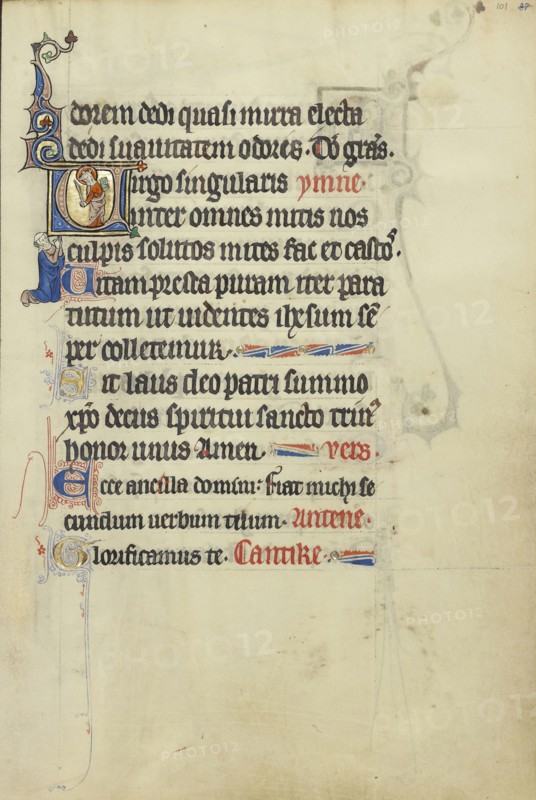 101 87
dorem dedi quasi mirra electa
dedi suavitatem odoris. Do gras.
Virgo singularis ymne.
inter omnes mitis nos
culpis solutos mites fac et castos.
Vitam presta puram iter para
tutum ut videntes ihesum sẽ
per colletemur.
Sit laus deo patri summo
xpo decus spiritui sancto trin⁹
honor unus Amen. vers.
Ecce ancilla domini: Fiat michi se
cundum verbum tuum. Antene.
Glorificamus te. Cantike.